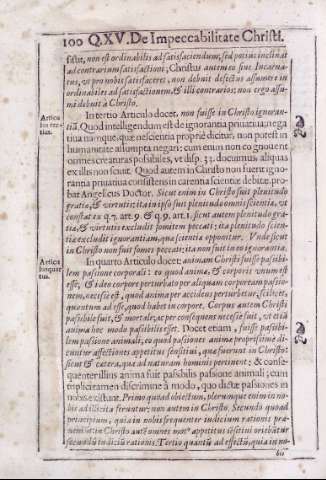 100 Q.XV. De Impeccabilitate Christi.
factū, non est ordinabilis ad satisfaciendum, sed potius inclinat
ad contrarium satisfactioni; Christus autem eo sine Incarna-
tus, vt pro nobis satisfaceret, non debuit defectus assumere in
ordinabiles ad satisfactionem, & illi contrarios; non ergo assu-
mi debuit à Christo.
Articu
lus ter-
tius.
In tertio Articulo docet, non fuisse in Christo ignoran-
tiā. Quod intelligendum est de ignorantia priuatiua, nega
tiua namque, quæ nescientia propriè dicitur, non potest in
humanitate assumpta negari; cum enim non cognouerit
omnes creaturas possibiles, vt disp. 31. documus, aliquas
ex illis non sciuit. Quod autem in Christo non fuerit ignor-
rantia priuatiua consistens in carentia scientiæ debitæ, pro-
bat Angelicus Doctor. Sicut enim in Christo fuit plenitudo
gratiæ, & virtutis; ita in ipso fuit plenitudo omnis scientiæ, vt
constat ex q. 7. art. 9. & q. 9. art. 1. sicut autem plenitudo gra-
tiæ, & virtutis excludit fomitem peccati; ita plenitudo scien-
tiæ excludit ignorantiam, quæ scientiæ opponitur. Vnde sicut
in Christo non fuit fomes peccati; ita non fuit in eo ignorantia.
Articu
lus quar
tus.
In quarto Articulo docet: animam Christi fuisse passibi-
lem passione corporali: eo quod anima, & corporis vnum est
esse, & ideo corpore perturbato per aliquam corpoream passio-
nem, necesse est, quod anima per accidens perturbetur, scilicet,
quantum ad esse, quod habet in corpore. Corpus autem Christi
passibile fuit, & mortale; ac per consequens necesse fuit, vt etiā
anima hoc modo passibilis esset. Docet etiam, fuisse passibi-
lem passione animali, eo quod passiones animæ propriissime di-
cuntur affectiones appetitus sensitiui, quæ fuerunt in Christo:
sicut & cætera, quæ ad naturam hominis pertinent: & conse-
quenter illius anima fuit passibilis passione animali; cum
triplici tamen discrimine à modo, quo dictæ passiones in
nobis existunt. Primo quoad obiectum, plerumque enim in no-
bis ad illicita feruntur; non autem in Christo. Secundo quoad
principium, quia in nobis frequenter iudicium rationis præ-
ueniūt: in Christo autē omnes motꝰ appetitus sēsitiui oriebātur
secundū iudiciū rationis. Tertio quantū ad effectū, quia in no-